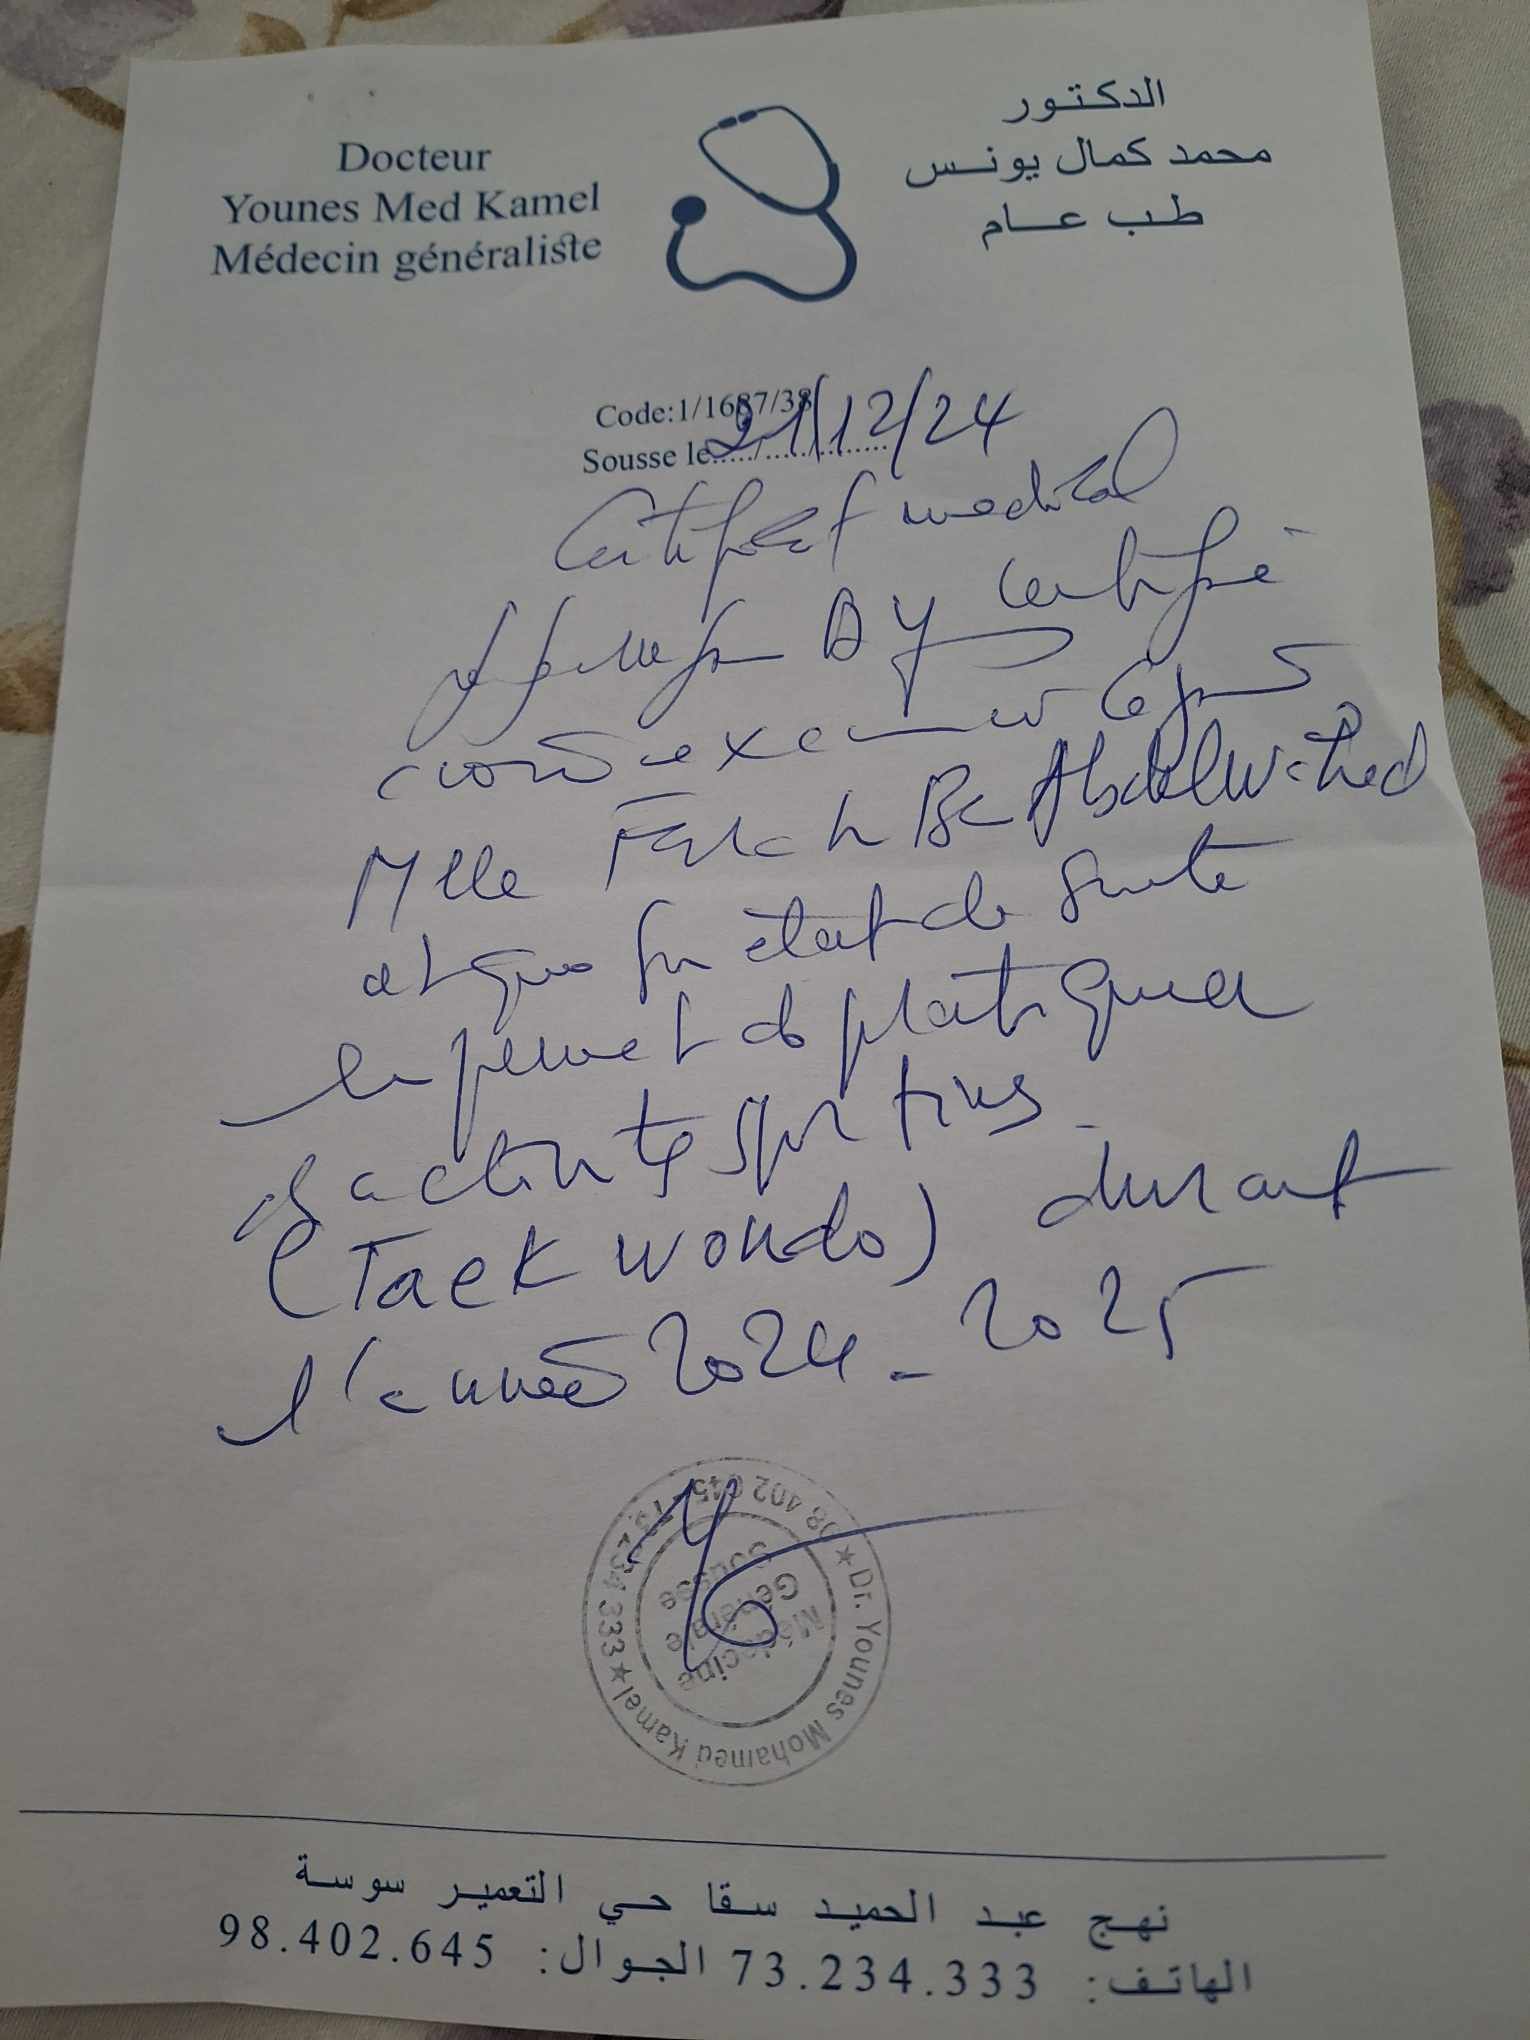 Docteur
Younes Med Kamel
Médecin généraliste
الدكتور
محمد كمال يونس
طب عام
Code:1/1687/38
Sousse le 21/12/24
Certificat medical
Je soussigné Dr Y certifie
avoir examiné ce jour
Mlle Farah Be Abdelwahed
et que son état de santé
lui permet de pratiquer
des activités sportives
(Taekwondo) durant
l'année 2024-2025
★Dr. Younes Mohamed Kamel★
98 402 645 - 73 234 333
Médecine
Générale
Sousse
نهج عبد الحميد سقا حي التعمير سوسة
الهاتف: 73.234.333 الجوال: 98.402.645